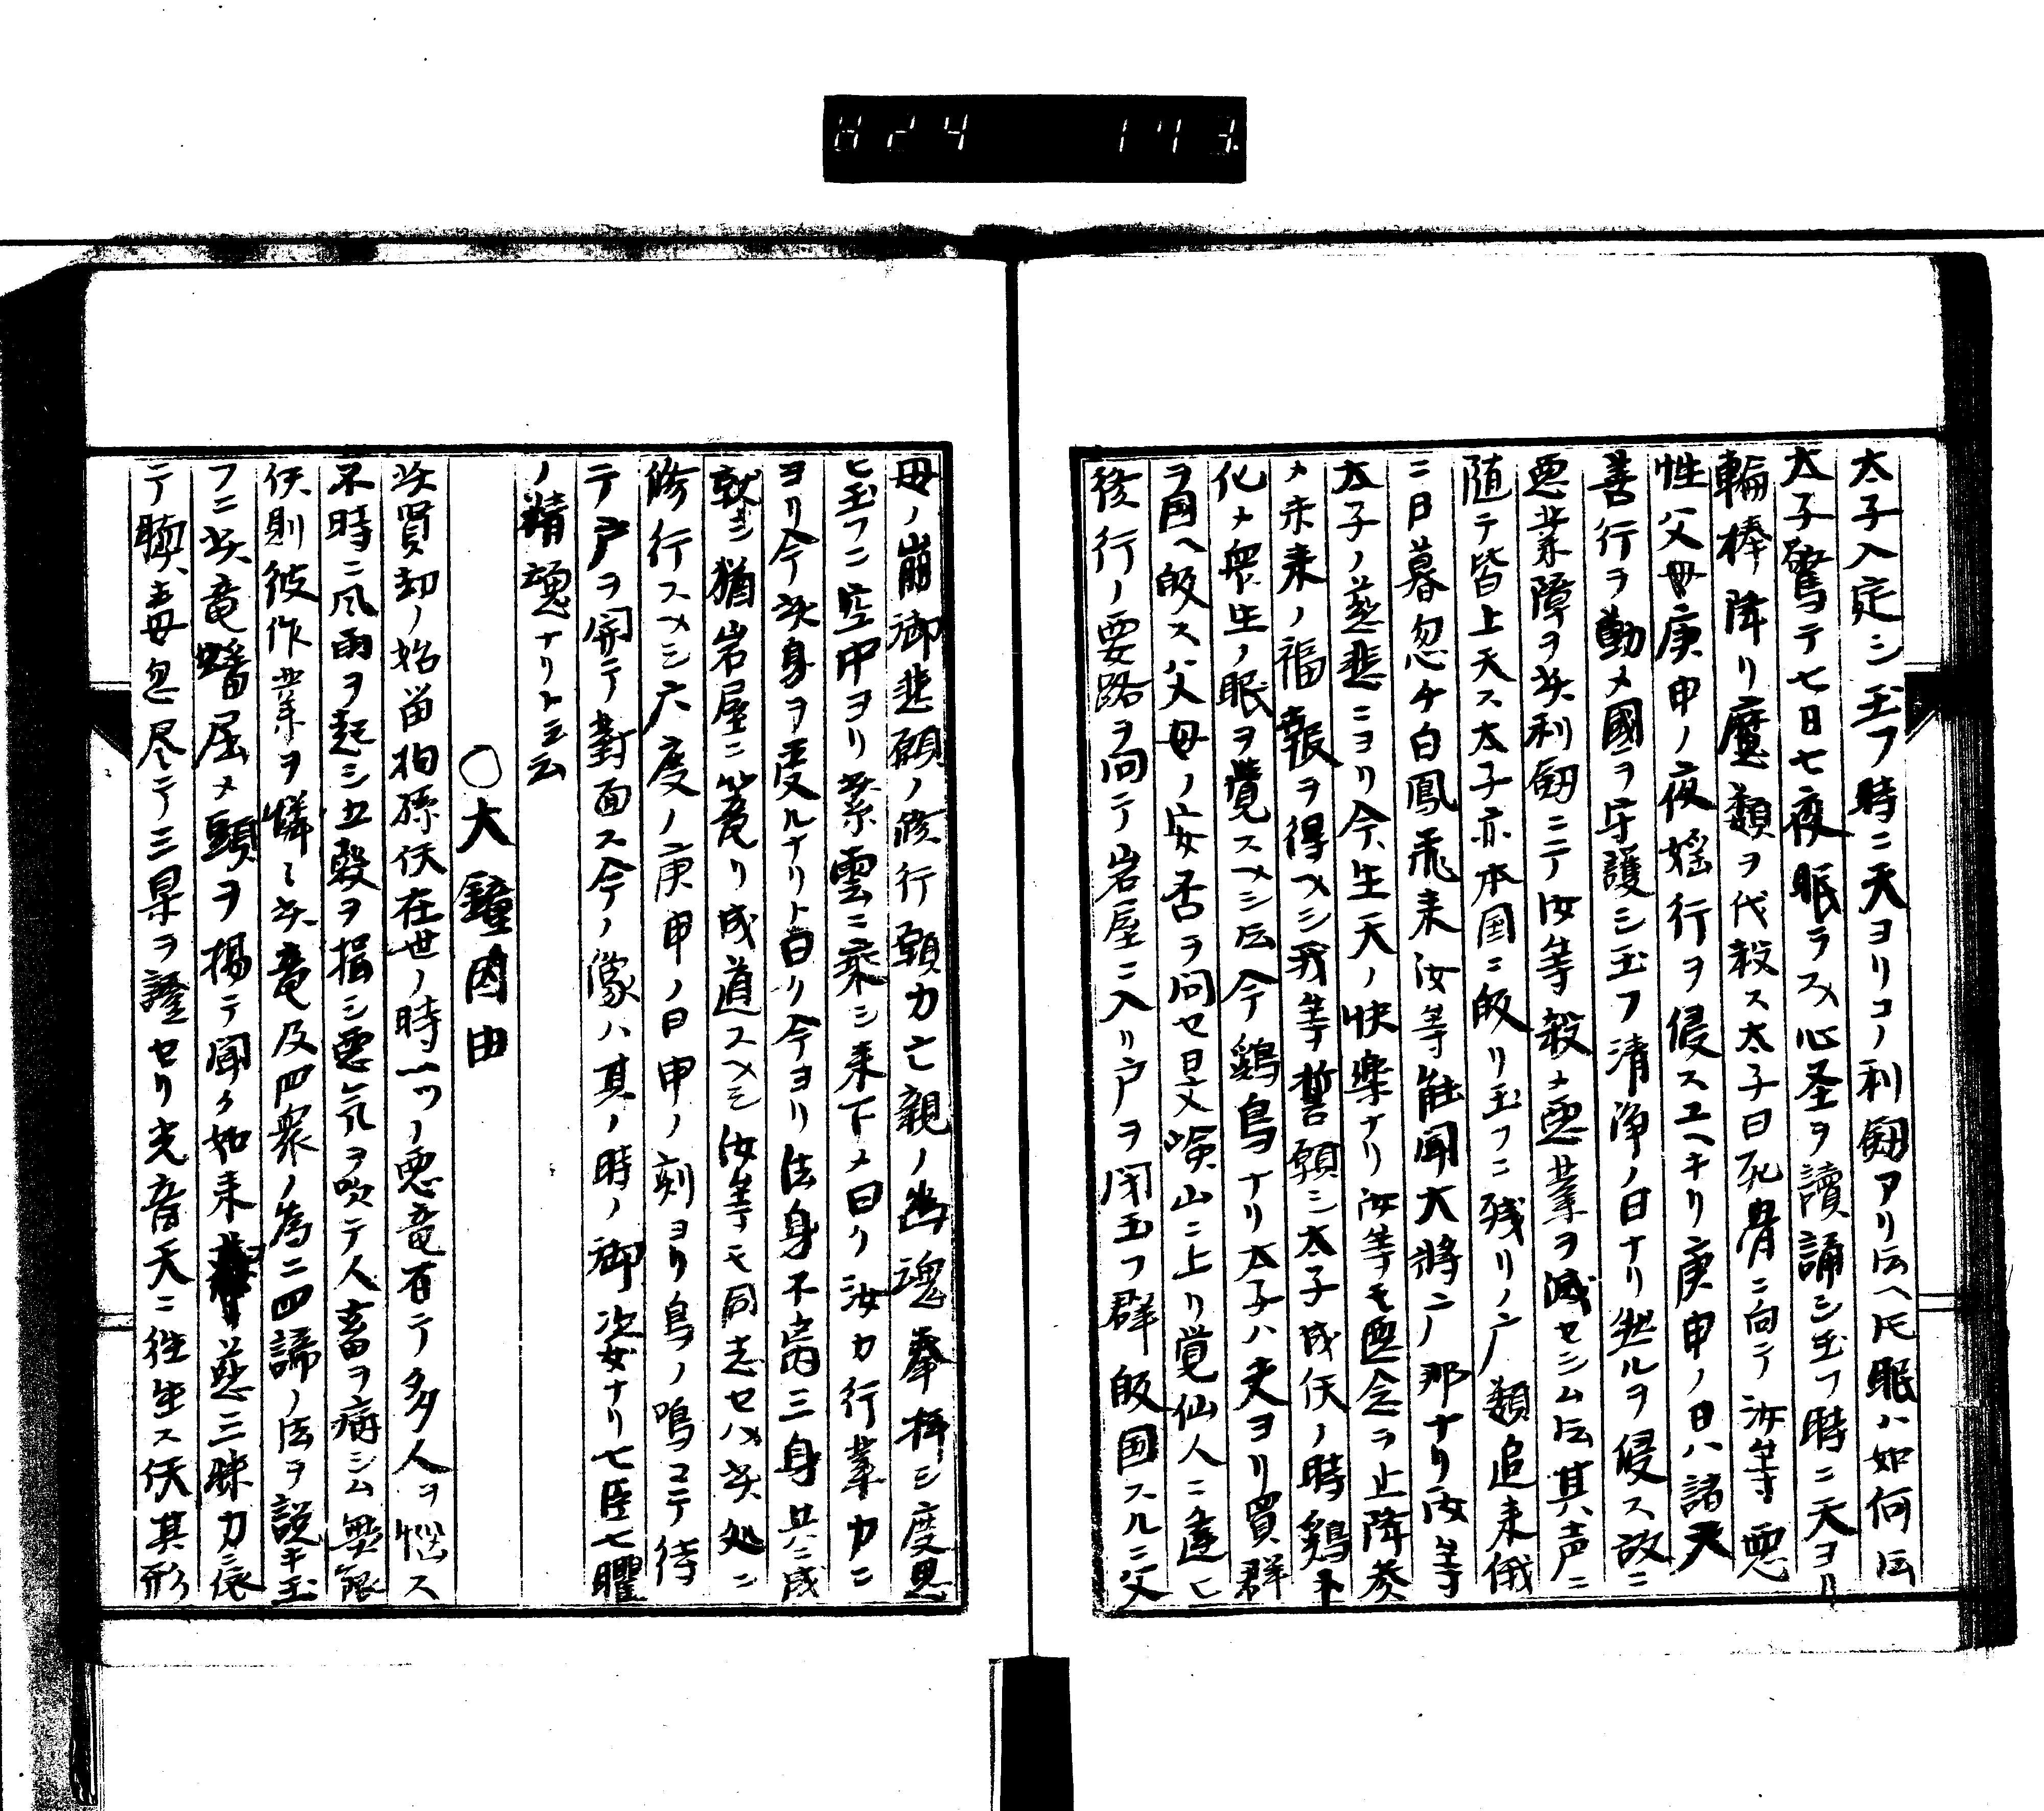 太子入定シ玉フ時ニ天ヨリコノ利劔アリ伝ヘ氏眠ハ如何伝
太子驚テ七日七夜眠ラス心圣ヲ讀誦シ玉フ時ニ天ヨリ
輪棒降リ魔類ヲ代殺ス太子曰死骨ニ向テ汝等悪
性父母庚申ノ夜婬行ヲ侵スユヘナリ庚申ノ日ハ諸天
善行ヲ勤メ國ヲ守護シ玉フ清浄ノ日ナリ然ルヲ侵ス故ニ
悪業障ヲ此利劔ニテ汝等殺メ悪業ヲ滅セシム伝其声ニ
随テ皆上天ス太子亦本国ニ皈リ玉フニ残リノ广類追来俄
ニ日暮忽チ白鳳飛来汝等能聞大將ニノ那ナリ汝等
太子ノ慈悲ニヨリ今生天ノ快樂ナリ汝等モ悪念ヲ止降参
メ未来ノ福報ヲ得ヘシ我等誓願シ太子成仸ノ時鷄ト
化メ衆生ノ眠ヲ覺スヘシ伝今鷄鳥ナリ太子ハ夫ヨリ買群
ヲ國ヘ皈ス父母ノ安否ヲ问セ是又嶮山ニ上リ覚仙人ニ逢ヒ
後行ノ要路ヲ问テ岩屋ニ入リ戸ヲ闭玉フ群皈国スルニ父
母ノ崩御悲願ノ修行願力亡親ノ幽魂奉拝シ度思
ヒ玉フニ空中ヨリ紫雲ニ乘シ来下メ曰ク汝カ行業力ニ
ヨリ今此身ヲ受ルナリト曰リ今ヨリ法身不离三身共ニ成
就シ猶岩屋ニ篭リ成道スヘシ汝等モ同志セハ此処ニ
修行スヘシ六度ノ庚申ノ日申ノ刻ヨリ鳥ノ鳴コテ待
テ戸ヲ開テ對面ス今ノ像ハ其ノ時ノ御姿ナリ七臣七曜
ノ精魂ナリト云云
〇大鐘因由
此賢劫ノ始留拘孫仸在世ノ時一ツノ悪竜有テ多人ヲ悩ス
不時ニ风雨ヲ起シ五穀ヲ損シ悪氣ヲ吹テ人畜ヲ痛シム無飯
仸則彼作業ヲ憐ミ此竜及四衆ノ為ニ四諦ノ法ヲ説キ玉
フニ此竜蟠屈メ頭ヲ揚テ聞ク如来慈三昧力ニ依
テ胸毒忽尽テ三杲ヲ證セリ光音天ニ往生ス仸其形